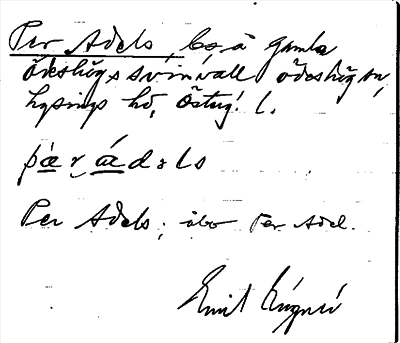 Per Adels, bs, å gamla
ödeshögs svinvall ödeshög sn,
lysings hd, Östug. l.
pär ádals
Per Adels; åbo Per Adel.
Emil